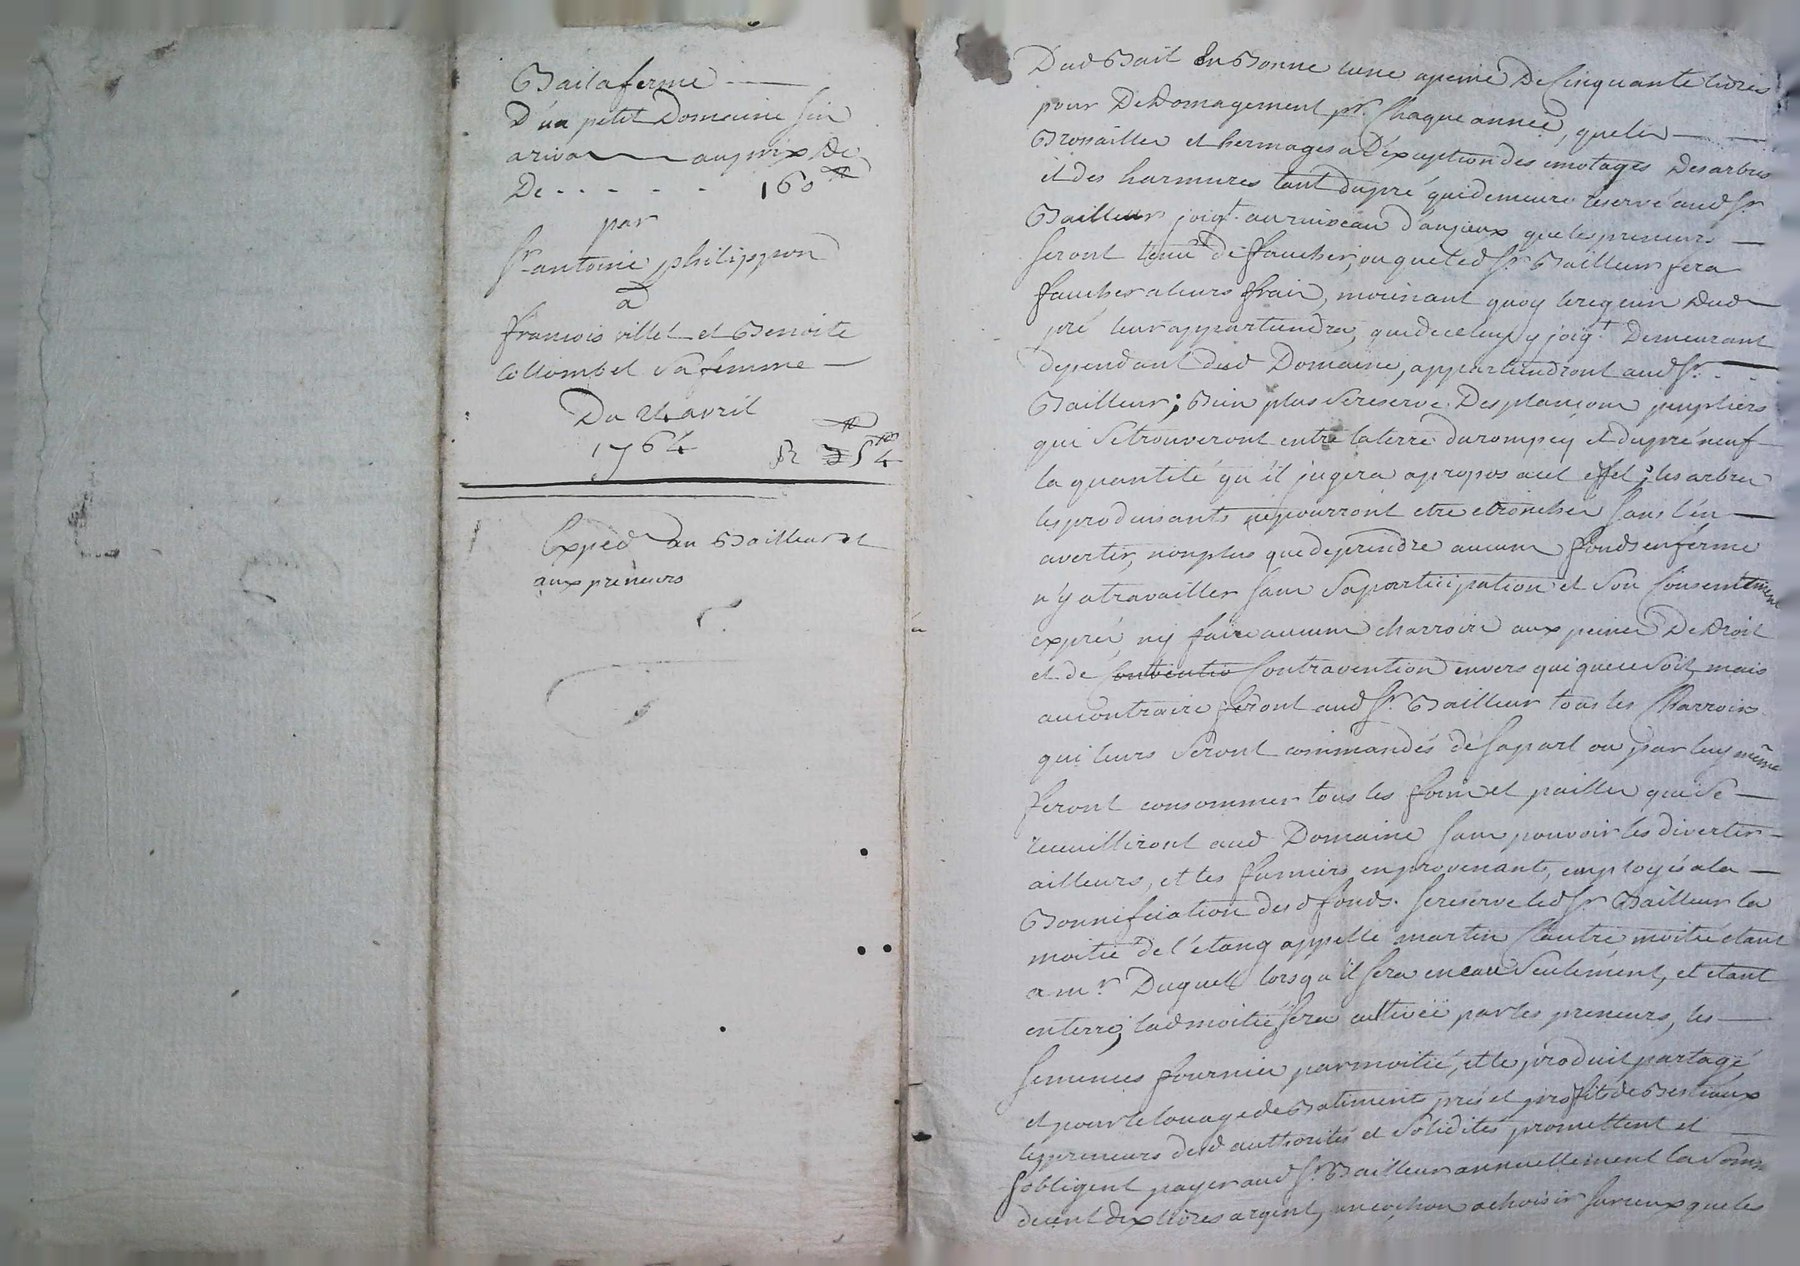 Bail a ferme
D'un petit Domaine sin
ariva au prix de
De - - - - - 160 ₶
par
Sr antoine philippon
a
francois villet et Benoite
Collombet sa femme
Du 24 avril
1764
Exped au Bailleur et
aux preneurs
Dud Bail En Bonne lune a peine De Cinquante livres
pour Dedomagement pr. Chaque année, que les
Brosailles et hermages a l'exception des emotages Des arbres
et des harmures tant du pré qui demeure reservé aud Sr.
Bailleur joigt. au ruisseau d'anjeux que les preneurs
seront tenus de faucher, ou que led Sr. Bailleur fera
faucher a leurs frais, moienant quoy le regain Dud
pré leur appartiendra, que de celuy y joigt. Demeurant
dependant dud Domaine, appartiendront aud Sr.
Bailleur; Bien plus se reserve Des plançons peupliers
qui se trouveront entre la terre du rompey et du pré neuf
la quantité qu'il jugera apropos a cet effet; les arbres
les produisants ne pourront etre etronches sans l'en
avertir, non plus que de prendre aucuns fonds en ferme
n'y a travailler sans sa participation et son Consentement
exprès, ny faire aucuns charroirs aux peines De Droit
et de Contravention envers qui que ce soit, mais
au contraire feront aud Sr. Bailleur tous les Charroirs
qui leurs seront commandés de sa part ou par luy même
feront consommer tous les foins et pailles qui se
recueilliront aud Domaine sans pouvoir les divertir
ailleurs, et les fumiers en provenants, employés a la
Bonnification desd fonds. se reserve led Sr. Bailleur la
moitié de l'étang appellé martin l'autre moitié étant
a mr. Duguet lorsqu'il sera en eau seulement, et étant
en terre; lad moitié sera cultivée par les preneurs, les
semences fournies par moitié, et le produit partagé
et pour le louage de Batiments prés et profits de Bestiaux
les preneurs desd authorités et solidités promettent et
s'obligent payer aud Sr. Bailleur annuellement la somme
de cent dix livres argent, un cochon a choisir sur ceux que les